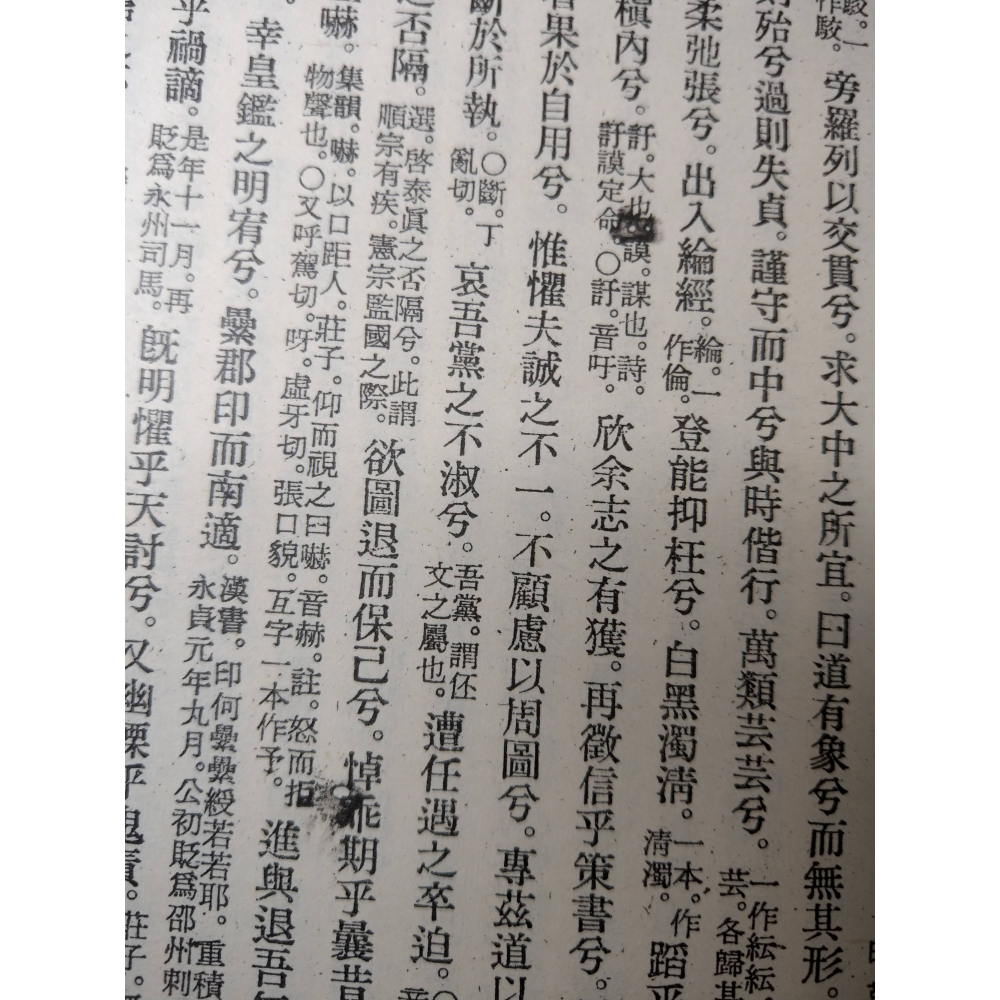 駁。一
作駮。
旁羅列以交貫兮。求大中之所宜。曰道有象兮而無其形。
則殆兮過則失貞。謹守而中兮與時偕行。萬類芸芸兮。
一作紜紜
芸。各歸其
柔弛張兮。出入綸經。
綸。一
作倫。
登能抑枉兮。白黑濁清。
一本。作
清濁。
蹈乎
內兮。
訏。大也。謨。謀也。詩。
訏謨定命。〇訏。音吁。
欣余志之有獲。再徵信乎策書兮。
果於自用兮。惟懼夫誠之不一。不顧慮以周圖兮。專茲道以
斷於所執。
〇斷。丁
亂切。
哀吾黨之不淑兮。
吾黨。謂伾
文之屬也。
遭任遇之卒迫。
之否隔。
選。啓泰眞之否隔兮。此謂
順宗有疾。憲宗監國之際。
欲圖退而保己兮。悼乖期乎曩昔
嚇。
集韻。嚇。以口距人。莊子。仰而視之曰嚇。音赫。註。怒而拒
物聲也。〇又呼駕切。呀。虛牙切。張口貌。互字一本作予。
進與退吾
幸皇鑑之明宥兮。纍郡印而南適。
漢書。印何纍纍綬若若耶。重積
永貞元年九月。公初貶爲邵州刺
乎禍謫。
是年十一月。再
貶爲永州司馬。
旣明懼乎天討兮。又幽慄乎鬼責。
莊子。